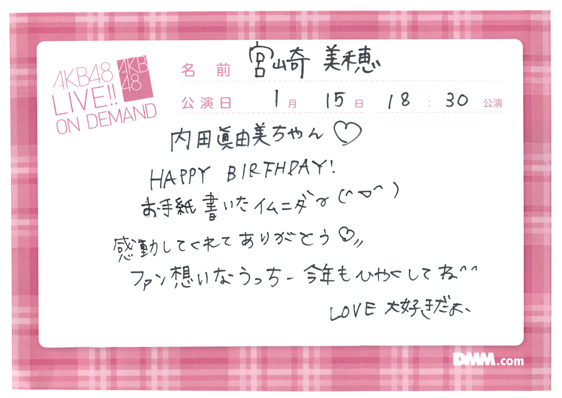 AKB48
LIVE!!
ON DEMAND
AKB
48
名前 宮崎美穂
公演日 1月 15日 18:30 公演
内田眞由美ちゃん♡
HAPPY BIRTHDAY!
お手紙書いたイムニダヶ(^▽^)
感動してくれてありがとう♡〃
ファン想いなうっちー今年もひやくしてね^^
LOVE 大好きだよ、
DMM.com